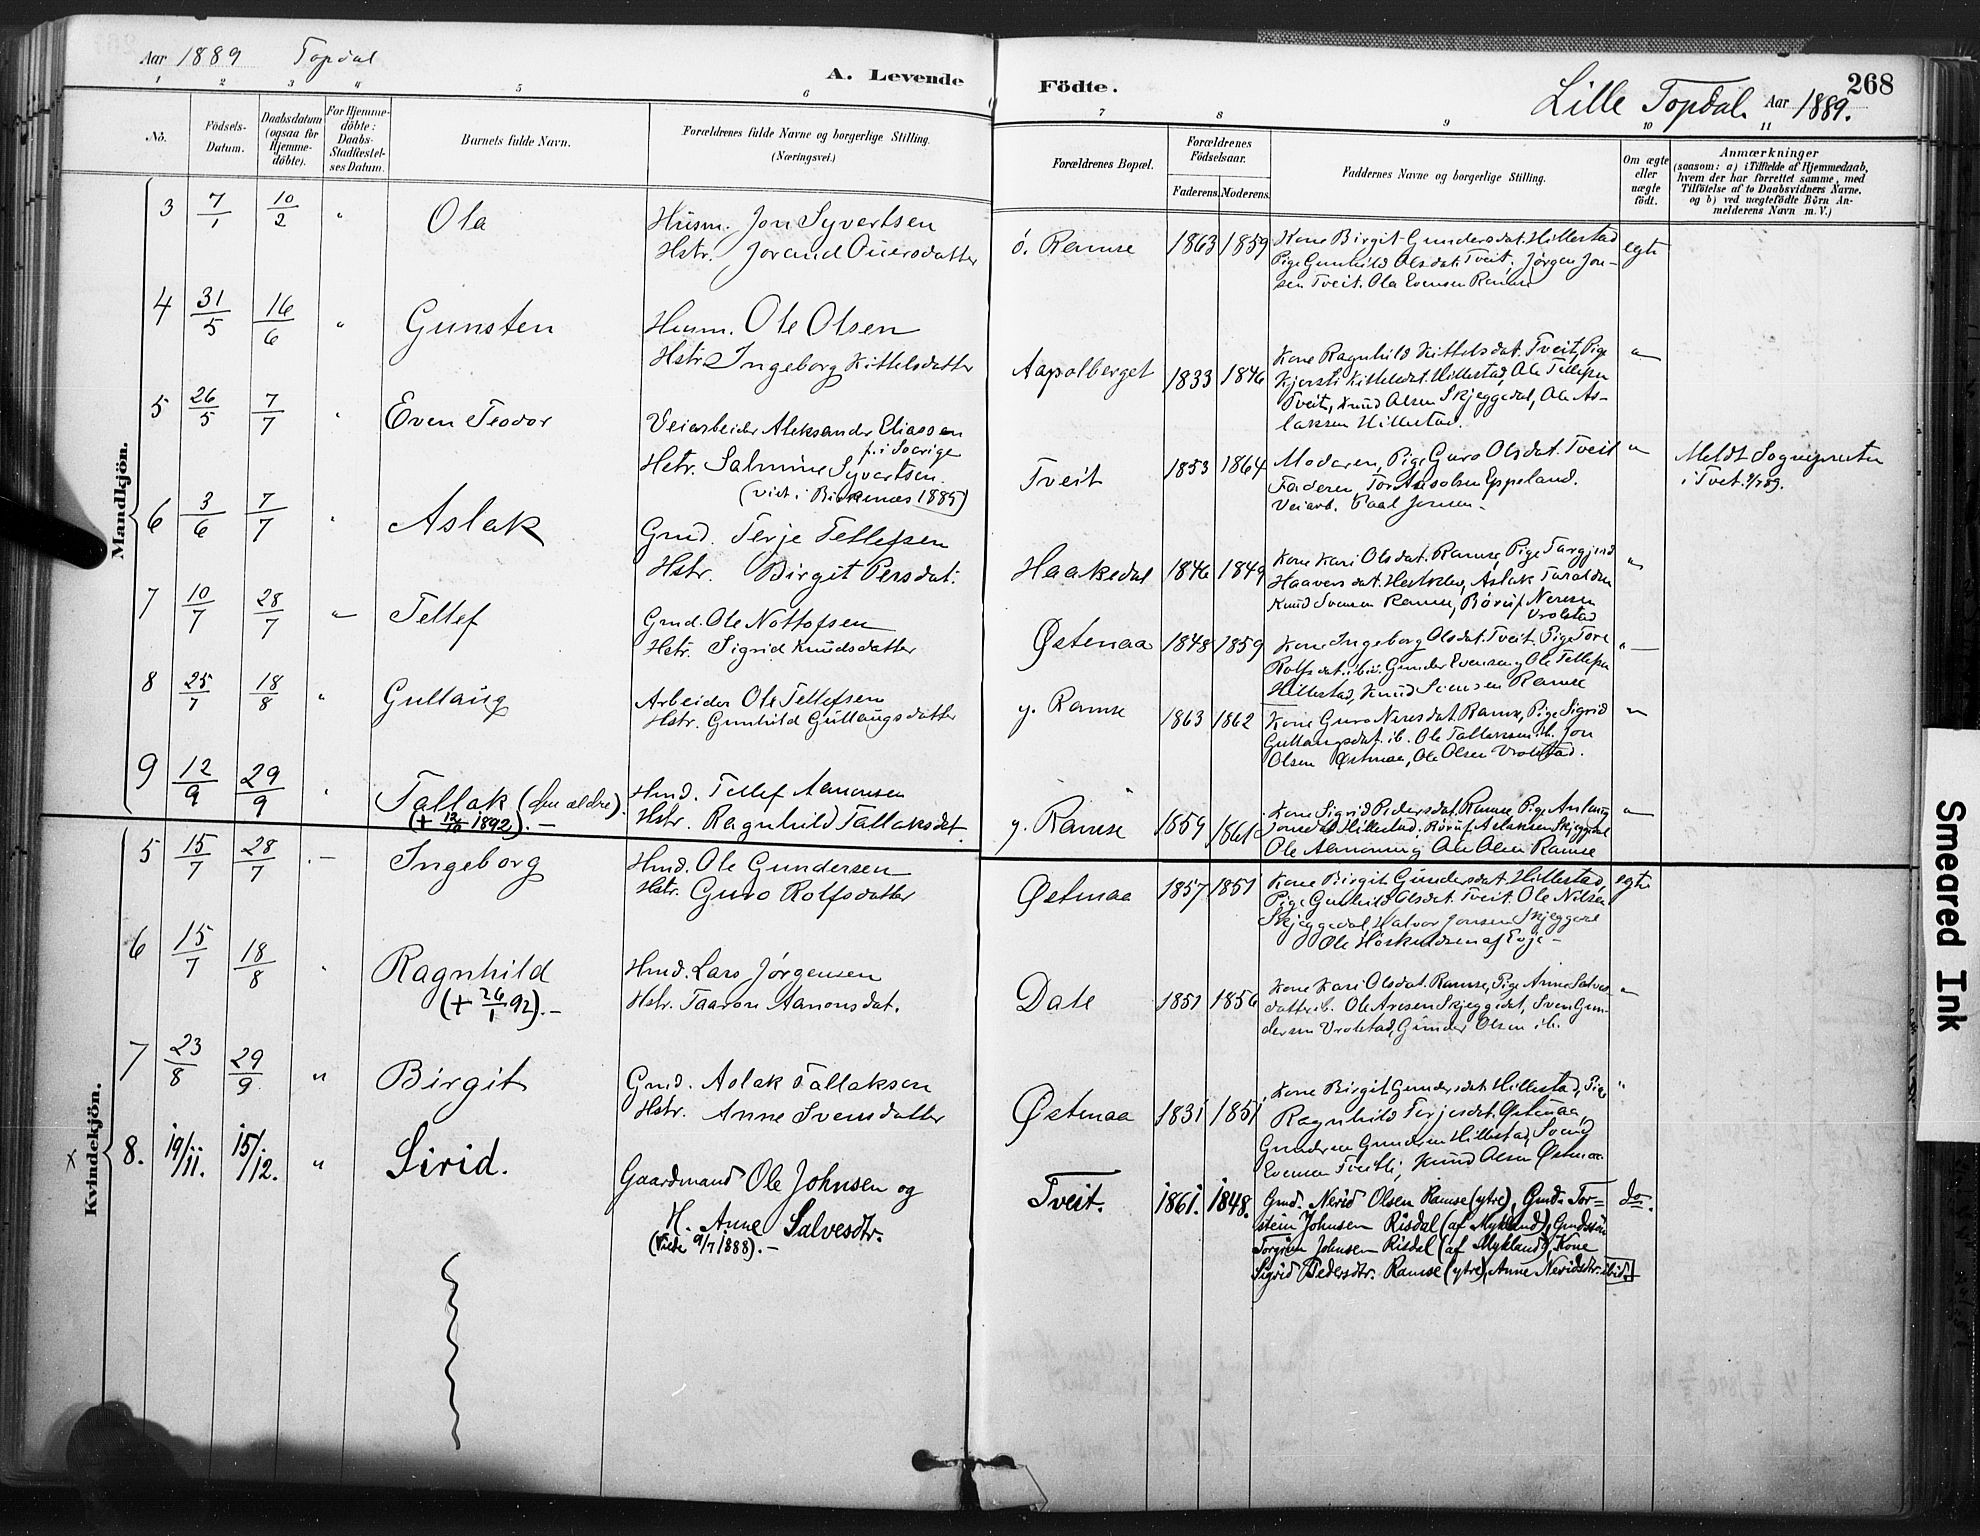 Aar 1889 Topdal
A. Levende Födte.
Lille Topdal. Aar 1889.
268
1 2 3 4 5 6 7 8 9 10 11
No.
Födsels-Datum.
Daabsdatum (ogsaa for Hjemmedöbte).
For Hjemmedöbte: Daabs-Stadfæstelses Datum.
Barnets fulde Navn.
Forældrenes fulde Navne og borgerlige Stilling. (Næringsvei.)
Forældrenes Bopæl.
Forældrenes Födselsaar.
Faderens. Moderens.
Faddernes Navne og borgerlige Stilling.
Om ægte eller uægte födt.
Anmærkninger
(saasom: a) i Tilfælde af Hjemmedaab, hvem der har forrettet samme, med Tilföielse af to Daabsvidners Navne. og b) ved uægtefödte Börn Anmelderens Navn m. V.)
Mandkjön.
3 7/1 10/2 " Ola
Husm. Jon Syvertsen
Hstr. Jorand
ö. Ramse 1863 1859
Kone Birgit Gundersdat. Hillestad
Pige Gunhild Olsdat. Tveit, Jörgen Jon-
sen Tveit. Ola Evensen Ramse
egte
4 31/5 16/6 " Gunsten
Husm. Ole Olsen
Hstr. Ingeborg Kittelsdatter
Aapolberget 1833 1846
Kone Ragnhild Kittelsdat. Tveit, Pige
Kjersti Kittelsdat. Hillestad, Ole Tellefsen
Tveit, Knud Olsen Skjeggedal, Ole As-
laksen Hillestad.
5 26/5 7/7 " Even Teodor
Veiarbeider Aleksander Eliassen
f. i Sverige
Hstr. Salmine Syvertsen.
(viet i Birkenæs 1885)
Tveit 1853 1864
Moderen, Pige Guro Olsdat. Tveit
Faderen Tor Eppeland.
Veiarb. Paal Jensen
Meldt Sognepresten
i Tvet
6 3/6 7/7 " Aslak
Gmd. Terje Tellefsen
Hstr. Birgit Persdat.
Haakedal 1846 1849
Kone Kari Olsdat. Ramse, Pige Targjerd
Haavorsdat. Aslak
Knud Svensen Ramse, Neresen
Vrolstad
7 10/7 28/7 " Tellef
Gmd. Ole Nottofsen
Hstr. Sigrid Knudsdatter
Østenaa 1848 1859
Kone Ingeborg Olsdat. Tveit. Pige Tore
Rolfsdat. ib. Gunder Evensen, Ole Tellefsen
Hillestad, Knud Svensen Ramse
8 25/7 18/8 " Gullaug
Arbeider Ole Tellefsen
Hstr. Gunhild Gullaugsdatter
y. Ramse 1863 1862
Kone Guro Neresdat. Ramse, Pige Sigrid
Gullaugsdat. ib. Ole ib. Jon
Olsen Østenaa, Ole Olsen Vrolstad.
9 12/9 29/9 " Tallak (den ældre).
(+ 12/10 1892).
Hmd. Tellef Aanonsen
Hstr. Ragnhild Tallaksdat.
y. Ramse 1859 1861
Kone Sigrid Pedersdat. Ramse, Pige
Jonsdat. Hillestad. Aslaksen Skjeggedal
Ole Olsen Ramse
Kvindekjön.
5 15/7 28/7 Ingeborg
Hmd. Ole Gundersen
Hstr. Guro Rolfsdatter
Østenaa 1857 1851
Kone Birgit Gundersdat. Hillestad,
Pige Gunhild Olsdat. Tveit. Ole Nilsen
Skjeggedal, Halvor Jonsen Skjeggedal
Ole af Evje
egte
6 15/7 18/8 " Ragnhild
(+ 26/1 92).
Hmd. Lars Jörgensen
Hstr. Taaran Aanonsdat.
Dale 1851 1856
Kone Kari Olsdat. Ramse, Pige Anne Salves-
datter ib. Ole Aresen Skjeggedal, Sven Gun-
dersen Vrolstad, Gunder Olsen ib.
7 23/8 29/9 " Birgit
Gmd. Aslak Tallaksen
Hstr. Anne Svensdatter
Østenaa 1831 1851
Kone Birgit Gundersdat. Hillestad, Pige
Ragnhild Terjesdat. Østenaa,
Gundersen Hillestad, Svend
Evensen Tveit, Knud Olsen Østenaa
x 8. 19/11. 15/12. " Sirid.
Gaardmand Ole Johnsen og
H. Anne Salvesdtr.
(Viede 9/7 1888).
Tveit. 1861. 1848.
Gmd. Nerid Olsen Ramse (ytre), Gmd. Tor-
stein Johnsen Risdal (af Mykland), Gmdssön
Torgrim Johnsen Risdal (af Mykland), Kone
Sigrid Pedersdtr. Ramse (ytre), Anne Neridsdtr. ibid.
do.
Smeared Ink